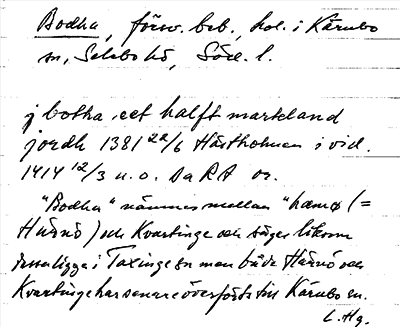 Bodha, förv. beb., bol. i Kärnbo
sn, Selebo hd, Söd. l.
j botha .eet halft markland
jordh 1381 22/6 Håstholmen i vid.
1414 12/3 u. o. Da RA or.
"Bodha" nämnes mellan "hærnø (=
Härnö) och Kvartinge och säges liksom
dessa ligga i Taxinge sn men både Härnö och
Kvartinge har senare överförts till Kärnbo sn.
L. Hg.